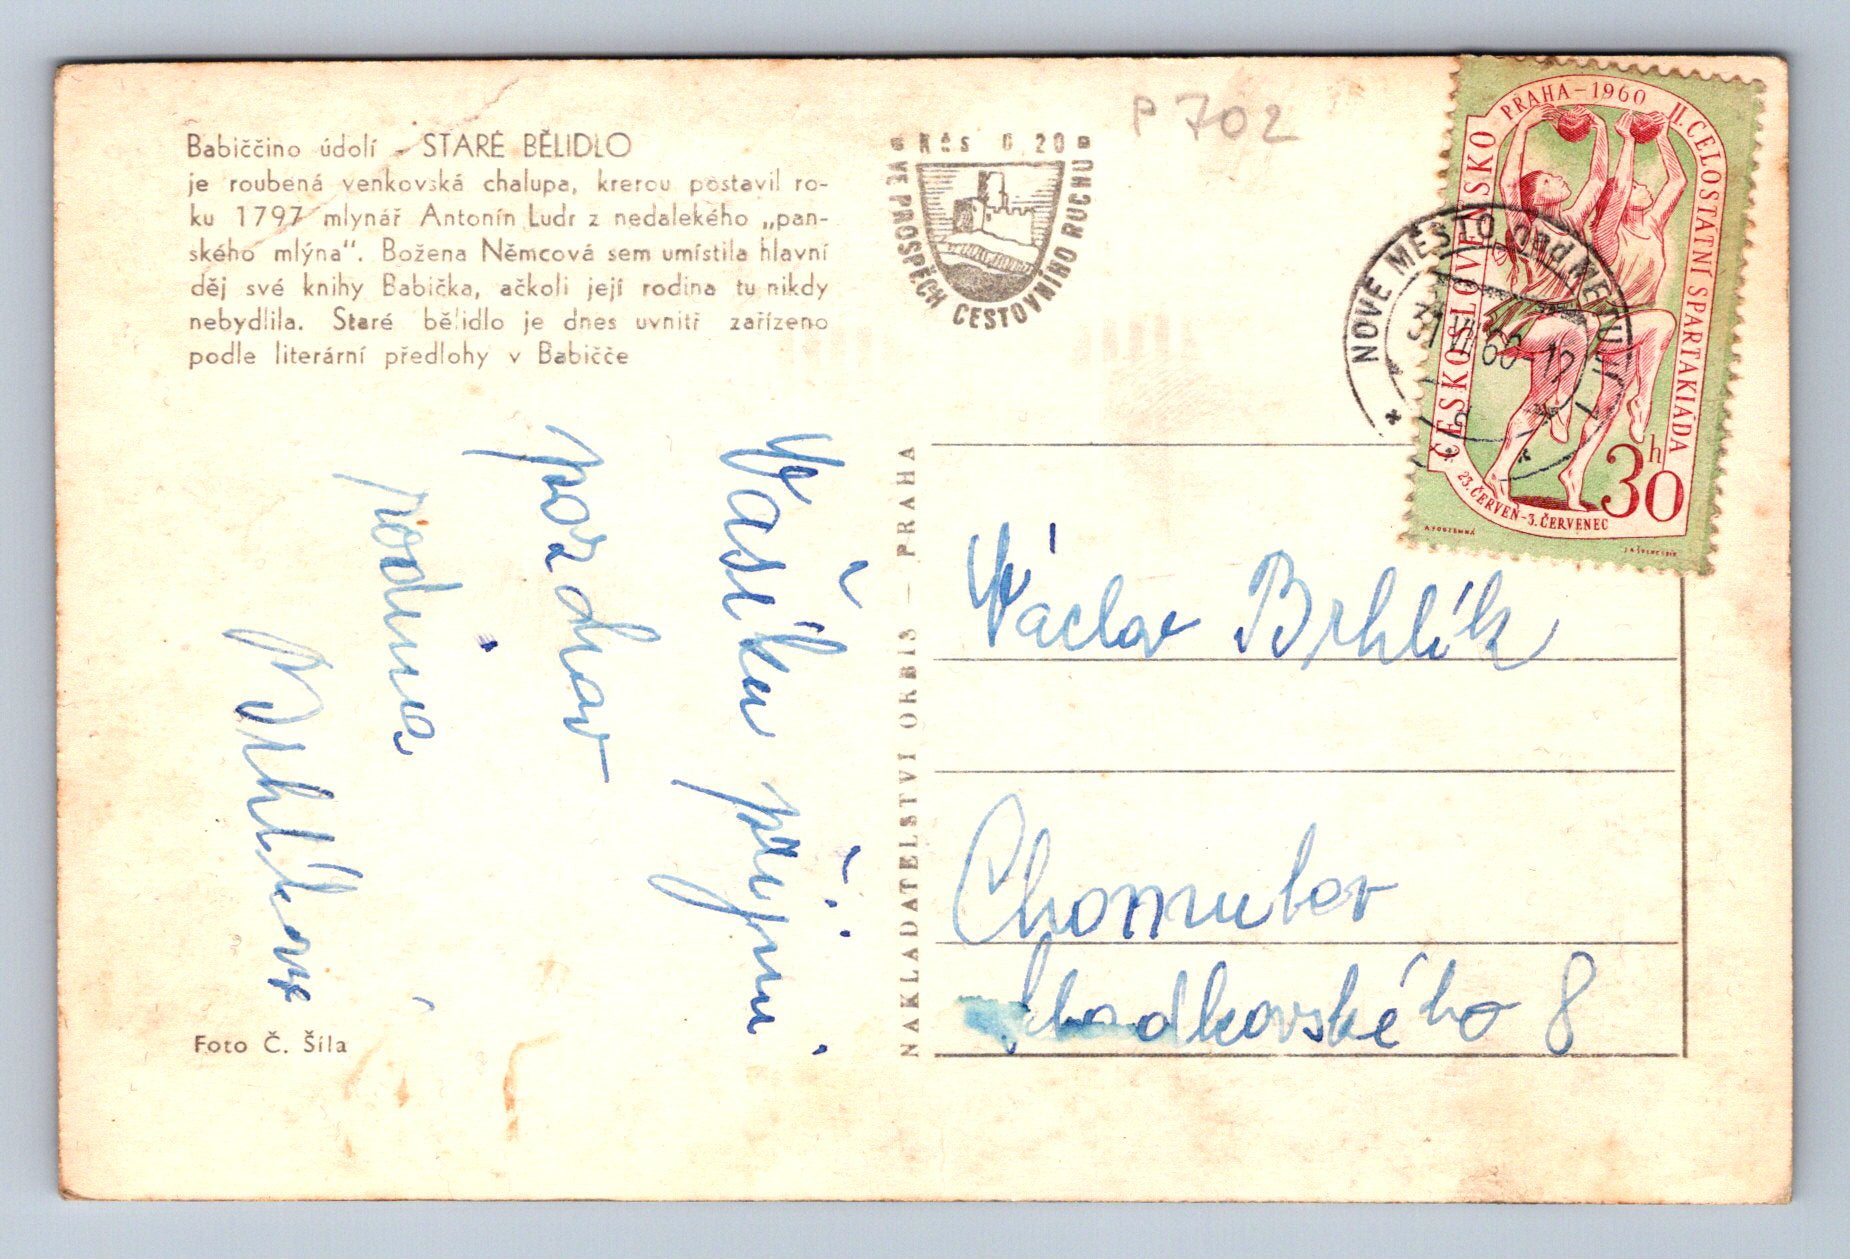 Babiččino údolí - STARÉ BĚLIDLO
je roubená venkovská chalupa, krerou postavil ro-
ku 1797 mlynář Antonín Ludr z nedalekého „pan-
ského mlýna“. Božena Němcová sem umístila hlavní
děj své knihy Babička, ačkoli její rodina tu nikdy
nebydlila. Staré bělidlo je dnes uvnitř zařízeno
podle literární předlohy v Babičče
Foto Č. Šíla
Vašíku přijmi
pozdrav
rodina
Brhlíkova
Kčs 0,20
VE PROSPĚCH CESTOVNÍHO RUCHU
NAKLADATELSTVÍ ORBIS — PRAHA
P 702
PRAHA-1960 II. CELOSTÁTNÍ SPARTAKIÁDA
ČESKOSLOVENSKO
23. ČERVEN-3. ČERVENEC
30 h
NOVÉ MĚSTO nad METUJÍ 1
31 VII 60-12
d
Václav Brhlík
Chomutov
Sladkovského 8